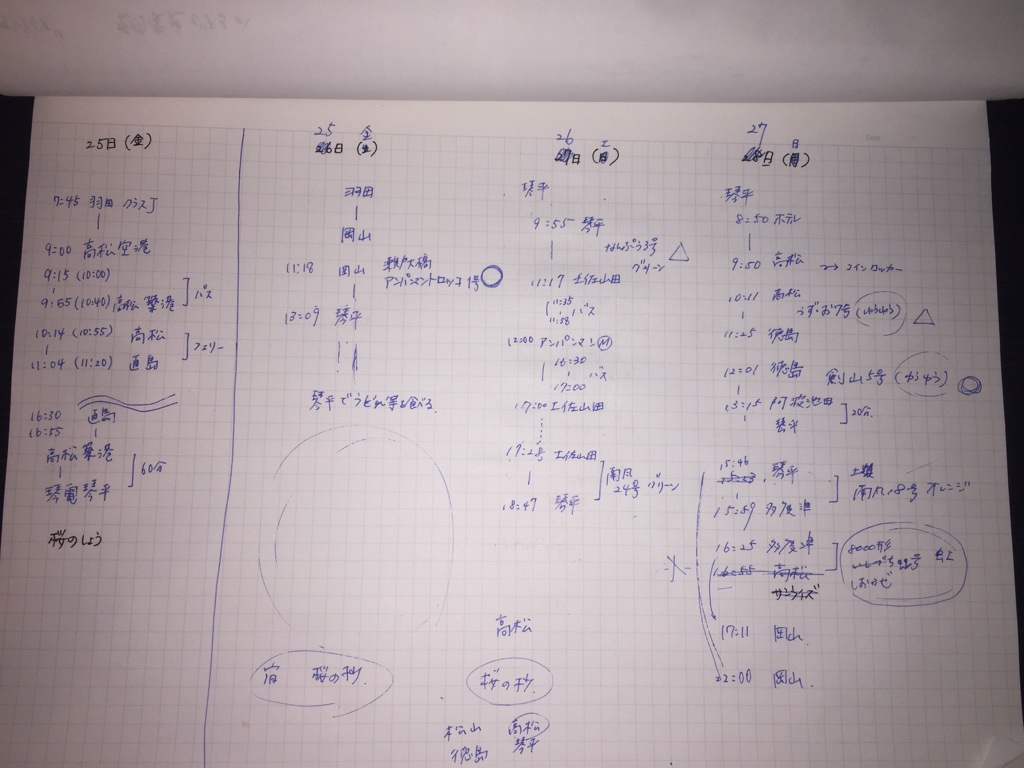 25日(金)
7:45 羽田 クラスJ
9:00 高松空港
9:15 (10:00)
9:55 (10:40) 高松築港
バス
10:14 (10:55) 高松
11:04 (11:20) 直島
フェリー
16:30 直島
16:55
高松築港
琴電琴平
60分
桜のしょう
25 金
26日(土)
羽田
岡山
11:18 岡山 瀬戸大橋
アンパンマントロッコ1号
13:09 琴平
琴平でうどん等を食べる
宿 桜の抄
26 土
27日(日)
琴平
9:55 琴平
なんぷう3号
グリーン
11:17 土佐山田
11:35
11:58
バス
12:00 アンパンマンM
16:30
17:00
バス
17:00 土佐山田
17:28 土佐山田
18:47 琴平
南風
24号 グリーン
高松
桜の抄
松山 高松
徳島 琴平
27 日
28日(月)
琴平
8:50 ホテル
9:50 高松 → コインロッカー
10:11 高松
うずしお7号 (ゆうゆう)
11:25 徳島
12:01 徳島 剣山5号 (ゆうゆう)
13:15 阿波池田
琴平
20分
15:46 琴平
15:53
南風18号 オレンジ
15:59 多度津
16:25 多度津
16:55 高松
サンライズ
8000形
いしづち 22号
しおかぜ
17:11 岡山
22:00 岡山